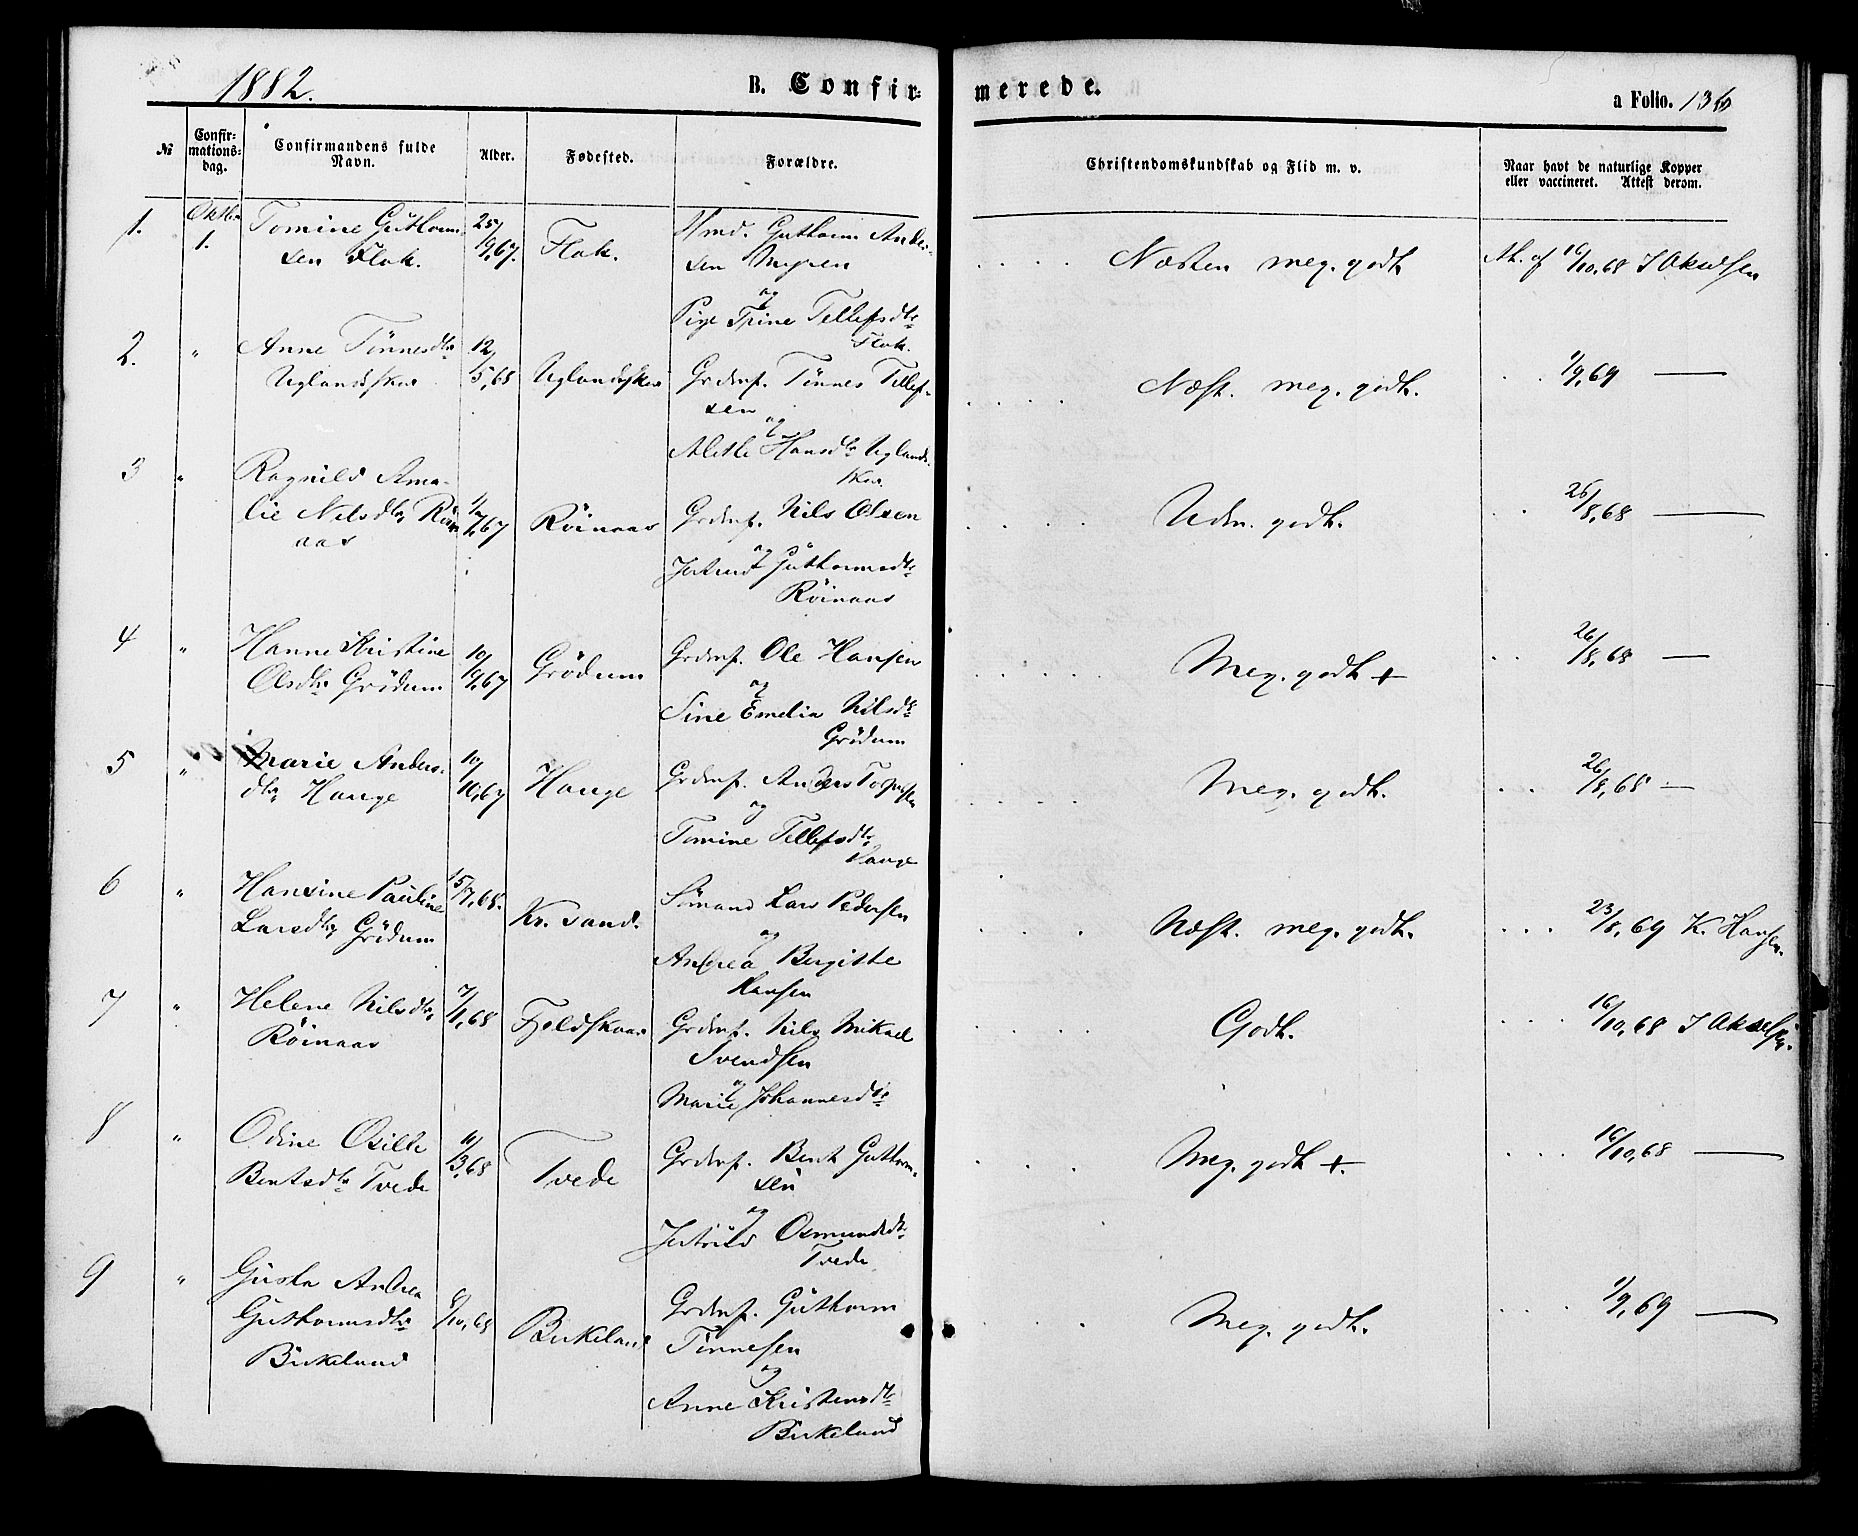 1882.
B. Confirmerede.
a Folio. 136
№
Confir-
mations-
dag.
Confirmandens fulde
Navn.
Alder.
Fødested.
Forældre.
Christendomskundskab og Flid m. v.
Naar havt de naturlige Kopper
eller vaccineret. Attest derom.
1. Oktbr 1. Tomine Guthorm-
sen Flak. 25/9,67. Flak.
Ande-
sen Myren
og
Pige Trine Tellefsdtr
Flak.
Næsten meg. godt
At. af 16/10,68 J Akselsen
2. " Anne Tønnesdtr
Uglandsskar 12/5,68 Uglandsskar
Grdmf. Tønnes Tellef-
sen
og
Alette Hansdtr Uglands-
skar
Næst. meg. godt.
1/9,69 —
3 " Ragnild Ama-
lie Nilsdtr Røi-
aas 1/7,67 Røinaas
Grdmf. Nils Olsen
og
Jertrud Guthormsdtr
Røinaas
Udm. godt.
26/8,68 —
4 " Hanne Kristine
Olsdtr Grødum 10/9,67 Grødum
Grdmf. Ole Hansen
og
Sine Emelia Nilsdtr
Grødum
Meg. godt +
26/8,68 —
5 " Marie Anders-
dtr Hauge 10/10,67 Hauge
Grdmf. Anders
og
Tomine Tellefsdtr
Hauge
Meg. godt.
26/8,68 —
6 " Hansine Pauline
Larsdtr Grødum 15/7,68. Kr. sand.
Sømand Lars Pedersen
og
Andrea Bergitte
Hansen
Næst. meg. godt.
23/8,69 K. Hansen.
7 " Helene Nilsdtr
Røinaas 7/1,68 Fjeldskaar
Grdmf. Nils Mikael
Svendsen
og
Marie Johannesdtr
Godt.
16/10,68 J Akselsen.
8 " Odine Osille
Bentsdtr Tvede 11/3,68 Tvede
Grdmf. Bent Guthorm-
sen
og
Jertrud Osmundsdtr
Tvede
Meg. godt +.
16/10,68 —
9 " Gusta Andrea
Guthormsdtr
Birkeland 8/10,68 Birkeland
Grdmf. Guthorm
Tønnesen
og
Anne Kristensdtr
Birkeland
Meg. godt.
1/9,69 —